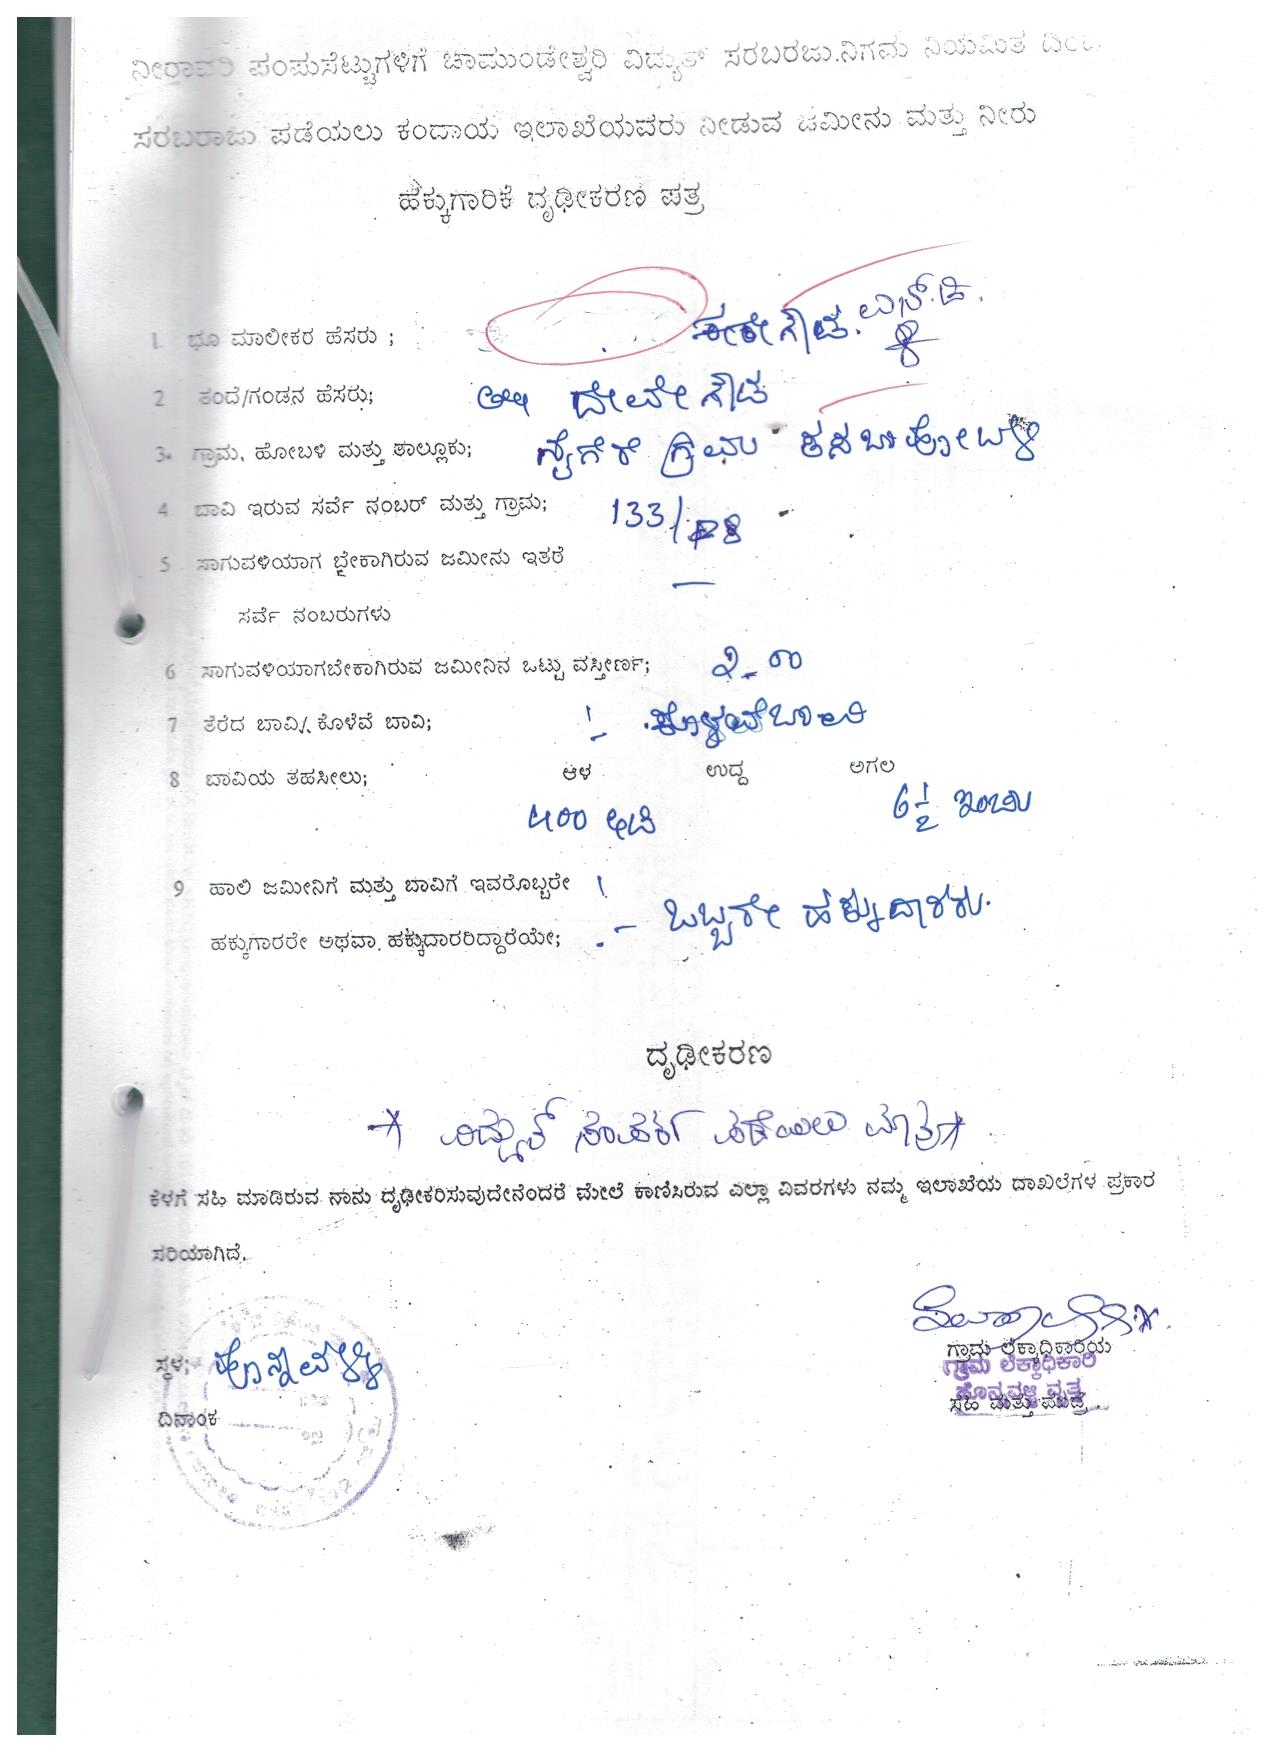 ನೀರಾವರಿ ಪಂಪುಸೆಟ್ಟುಗಳಿಗೆ ಚಾಮುಂಡೇಶ್ವರಿ ವಿದ್ಯುತ್ ಸರಬರಜು.ನಿಗಮ ನಿಯಮಿತ ದಿಂದ
ಸರಬರಾಜು ಪಡೆಯಲು ಕಂದಾಯ ಇಲಾಖೆಯವರು ನೀಡುವ ಜಮೀನು ಮತ್ತು ನೀರು
ಹಕ್ಕುಗಾರಿಕೆ ದೃಢೀಕರಣ ಪತ್ರ
1 ಭೂ ಮಾಲೀಕರ ಹೆಸರು ; ಎನ್.ಡಿ.
2 ತಂದೆ/ಗಂಡನ ಹೆಸರು; ದೇವೇಗೌಡ
3 ಗ್ರಾಮ, ಹೋಬಳಿ ಮತ್ತು ತಾಲ್ಲೂಕು; ಕಸಬಾ ಹೋಬಳಿ
4 ಬಾವಿ ಇರುವ ಸರ್ವೆ ನಂಬರ್ ಮತ್ತು ಗ್ರಾಮ; 133/
5 ಸಾಗುವಳಿಯಾಗ ಬೇಕಾಗಿರುವ ಜಮೀನು ಇತರೆ —
ಸರ್ವೆ ನಂಬರುಗಳು
6 ಸಾಗುವಳಿಯಾಗಬೇಕಾಗಿರುವ ಜಮೀನಿನ ಒಟ್ಟು ವಸ್ತೀರ್ಣ; ೨-೦೦
7 ತೆರೆದ ಬಾವಿ/. ಕೊಳೆವೆ ಬಾವಿ; !- ಕೊಳವೆಬಾವಿ
8 ಬಾವಿಯ ತಹಸೀಲು; ಆಳ ಉದ್ದ ಅಗಲ
೪೦೦ ಅಡಿ 6 1/2 ಇಂಚು
9 ಹಾಲಿ ಜಮೀನಿಗೆ ಮತ್ತು ಬಾವಿಗೆ ಇವರೊಬ್ಬರೇ
ಹಕ್ಕುಗಾರರೇ ಅಥವಾ. ಹಕ್ಕುದಾರರಿದ್ದಾರೆಯೇ; - ಒಬ್ಬರೇ ಹಕ್ಕುದಾರರು.
ದೃಢೀಕರಣ
* ವಿದ್ಯುತ್ ಸಂಪರ್ಕ ಪಡೆಯಲು ಮಾತ್ರ *
ಕೆಳಗೆ ಸಹಿ ಮಾಡಿರುವ ನಾನು ದೃಢೀಕರಿಸುವುದೇನೆಂದರೆ ಮೇಲೆ ಕಾಣಿಸಿರುವ ಎಲ್ಲಾ ವಿವರಗಳು ನಮ್ಮ ಇಲಾಖೆಯ ದಾಖಲೆಗಳ ಪ್ರಕಾರ
ಸರಿಯಾಗಿದೆ.
ಸ್ಥಳ; ಹೊನ್ನವಳ್ಳಿ
ಗ್ರಾಮ ಲೆಕ್ಕಾಧಿಕಾರಿಯ
ಗ್ರಾಮ ಲೆಕ್ಕಾಧಿಕಾರಿ
ಹೊನ್ನವಳ್ಳಿ ವೃತ್ತ
ದಿನಾಂಕ
ಸಹಿ ಮತ್ತು ಮುದ್ರೆ